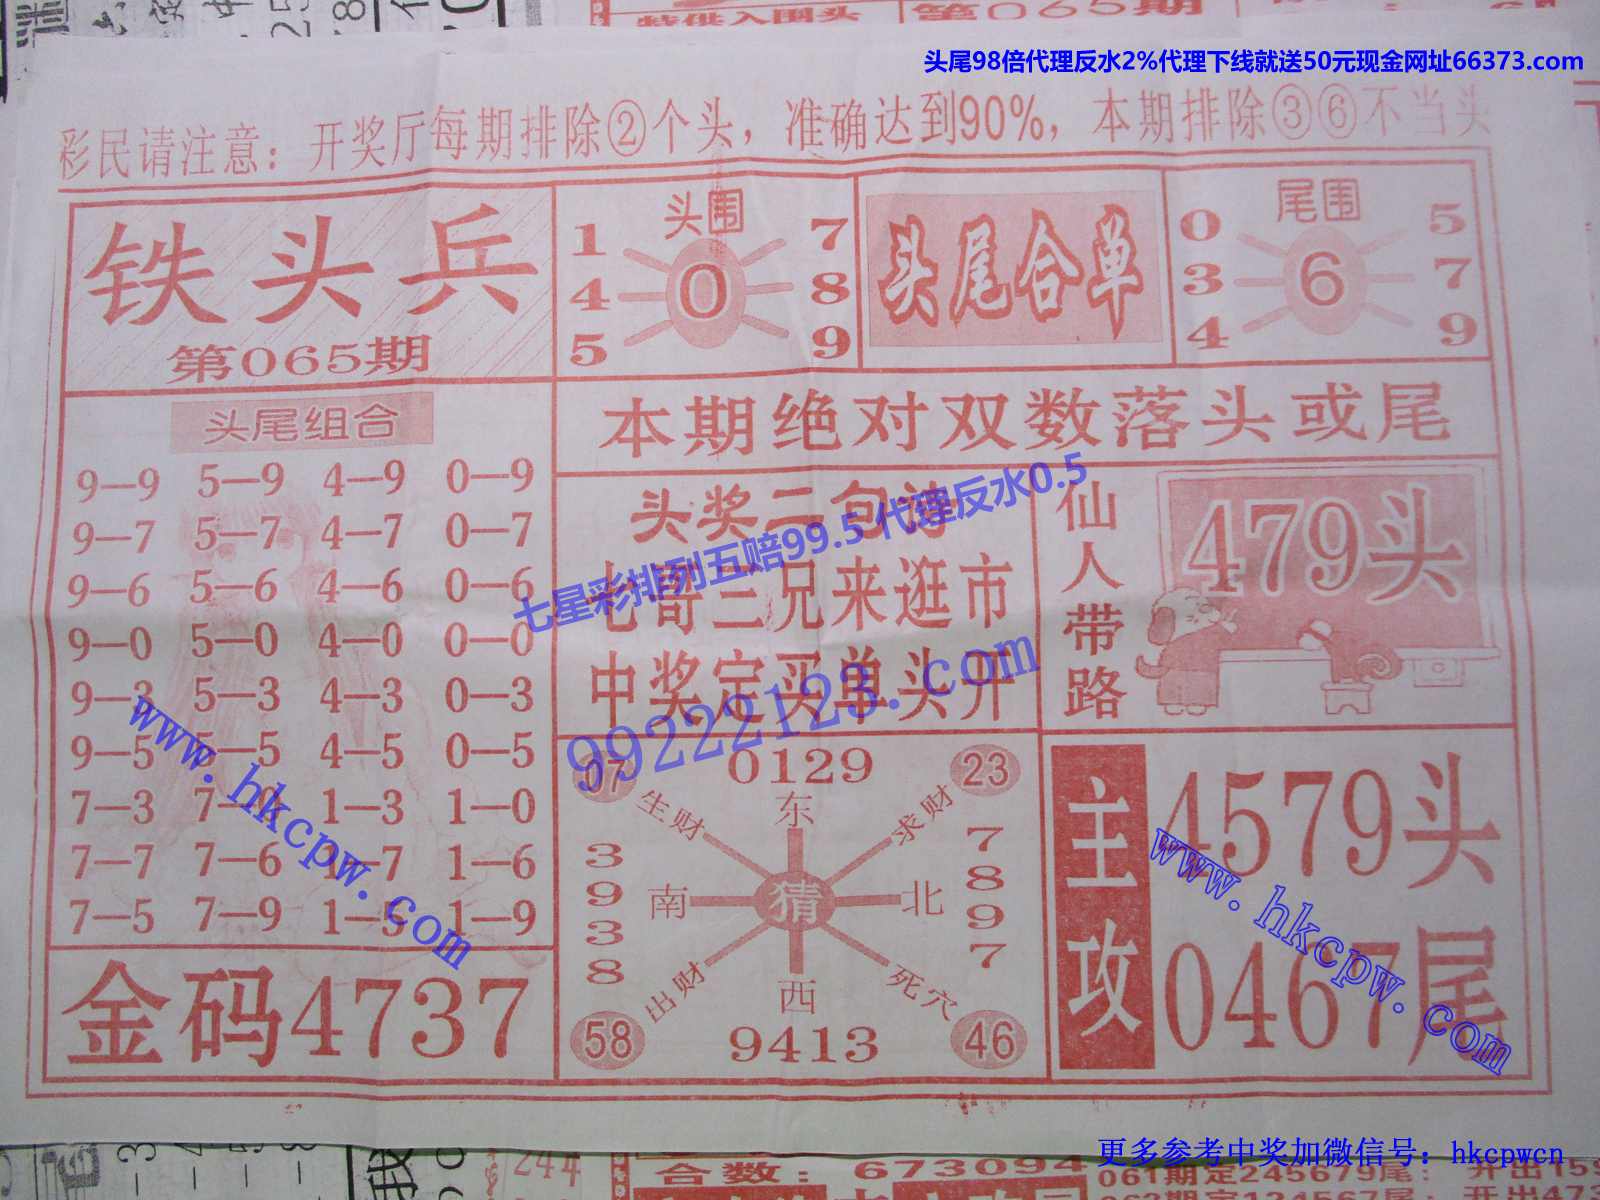 特供入围头
第065期
头尾98倍代理反水2%代理下线就送50元现金网址66373.com
彩民请注意：开奖厅每期排除②个头，准确达到90%，本期排除③⑥不当头
铁头兵
第065期
头围
1 7
4 0 8
5 9
头尾合单
尾围
0 5
3 6 7
4 9
头尾组合
9—9 5—9 4—9 0—9
9—7 5—7 4—7 0—7
9—6 5—6 4—6 0—6
9—0 5—0 4—0 0—0
9—3 5—3 4—3 0—3
9—5 5—5 4—5 0—5
7—3 7—0 1—3 1—0
7—7 7—6 1—7 1—6
7—5 7—9 1—5 1—9
金码4737
本期绝对双数落头或尾
头奖二句诗
七哥三兄来逛市
中奖定买单头开
仙人带路
479头
07 0129 23
生财 东 求财
3938 南 猜 北 7897
出财 西 死穴
58 9413 46
主攻
4579头
0467尾
七星彩排列五赔99.5代理反水0.5
99222123.com
www.hkcpw.com
www.hkcpw.com
更多参考中奖加微信号：hkcpwcn
合数：673094
061期定245679尾：开出159
244